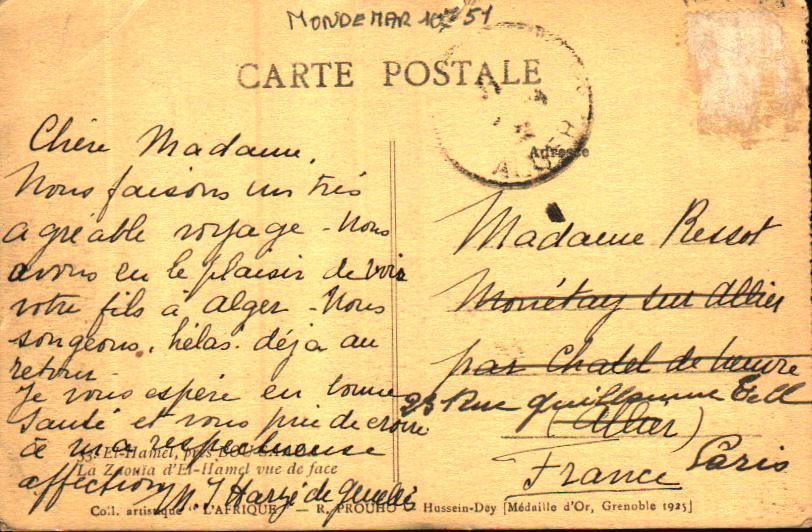 MONDEMAR 10 51
CARTE POSTALE
ALGER
Adresse
Chère Madame,
Nous faisons un très
agréable voyage - Nous
avons eu le plaisir de voir
votre fils à Alger - Nous
songeons, hélas, déjà au
retour -
Je vous espère en bonne
Santé et vous prie de croire
à ma respectueuse
affection
Madame Ressot
Monétay sur Allier
par Chatel de Neuvre
23 Rue Guillaume Tell
(Allier)
Paris
France
33. El-Hamel, près BOU
La Zaouïa d'El-Hamel vue de face
Coll. artistique "L'AFRIQUE" - R. PROUHO Hussein-Dey [Médaille d'Or, Grenoble 1925]